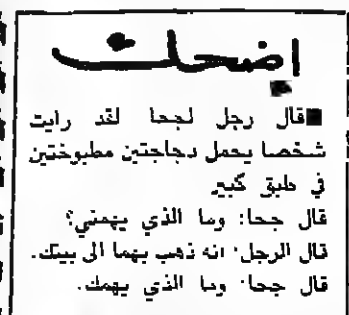 إضحك
قال رجل لجحا لقد رايت
شخصا يحمل دجاجتين مطبوختين
في طبق كبير
قال جحا: وما الذي يهمني؟
قال الرجل: انه ذهب بهما الى بيتك.
قال جحا: وما الذي يهمك.